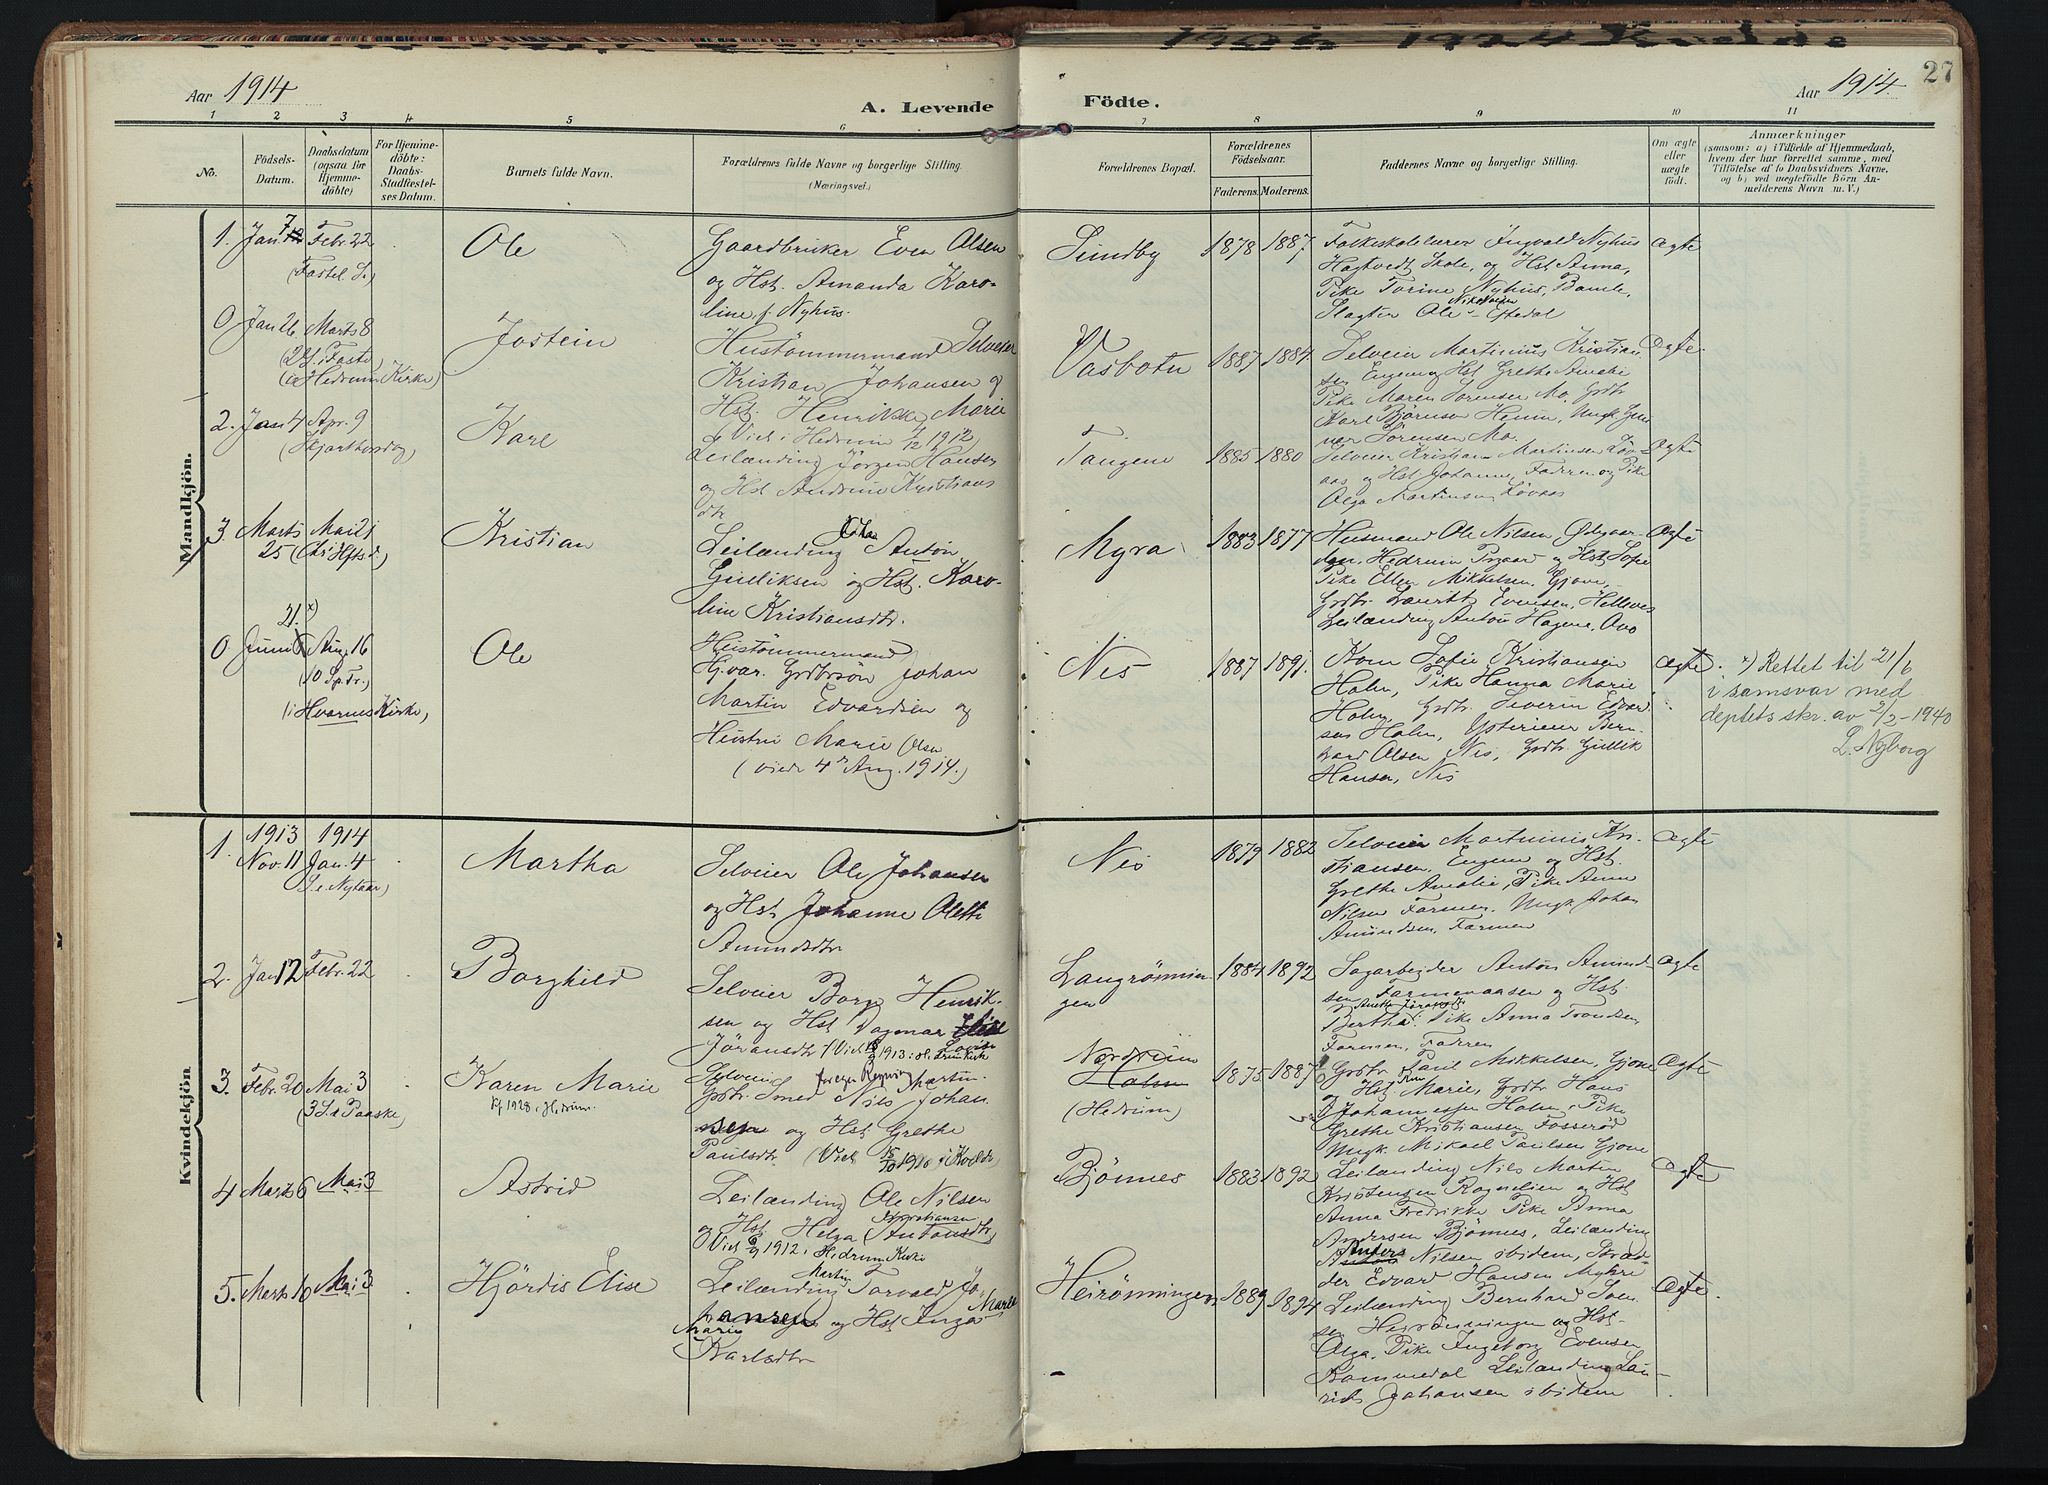 1906 1924 Kvelde
27
Aar 1914
A. Levende Födte.
Aar 1914.
1 2 3 4 5 6 7 8 9 10 11
No.
Födsels-
Datum.
Daabsdatum
(ogsaa for
Hjemme-
döbte)
For Hjemme-
döbte:
Daabs-
Stadfæstel-
ses Datum.
Barnets fulde Navn.
Forældrenes fulde Navne og borgerlige Stilling.
(Næringsvei.)
Forældrenes Bopæl.
Forældrenes
Födselsaar.
Faderens. Moderens.
Faddernes Navne og borgerlige Stilling.
Om ægte
eller
uægte
født.
Anmærkninger
(saasom: a) i Tilfælde af Hjemmedaab,
hvem der har forrettet samme, med
Tilföielse af to Daabsvidners Navne,
og b) ved uægtefödte Börn An-
melderens Navn m. V.)
Mandkjön.
1. Jan. 7 Febr. 22
(Fastel. S.)
Ole
Gaardbruker Even Olsen
og Hst. Amanda Karo-
line f. Nyhus.
Sundby
1878 1887.
Folkeskolelærer Ingvald Nyhus
Hagtvedt Skole, og Hst. Anna,
Pike Torine Nyhus, Bamle,
Slagter Ole Nikolaisen Eftedal
Ægte
0 Jan 26 Marts 8
(2 S. i Faste)
(i Hedrum Kirke)
Jostein
Hustömmermand Selveier
Kristian Johansen og
Hst. Henrikke Marie
(Viet i Hedrum 4/12 1912)
Vasbotn
1887 1884.
Selveier Martinius Kristian
sen Eugen og Hst Grethe Amalie
Pike Maren Sörensen Mo. Grdbr
Karl Björnsen Heum, Ungk Gun
nar Sörensen Mo.
Ægte.
2. Jan 4 Apr. 9
(Skjærthorsdag)
Karl
Leilænding Jörgen Hansen
og Hst Andrine Kristians
dtr
Tangene
1885 1880
Selveier Kristian Martinsen Löv-
aas og Hst Johanne, Fadren og Pike
Olga Martinsen, Lövaas
Ægte
3. Marts Mai 21
25 (Kr. Hftsd.)
Kristian
Leilænding Ole Anton
Gulliksen og Hst. Karo-
line Kristiansdtr.
Myra
1883 1877
Husmand Ole Nilsen Ödegaar-
den, Hedrum Prgaard og Hst Sofie
Pike Ellen Mikkelsen, Gjone,
Grdbr. Lauritz Evensen, Hellenes
Leilænding Anton Hagene, Ono
Ægte
21. x)
0 Juni Aug. 16
(10 S. p. Tr.)
(i Hvarnes Kirke,)
Ole
Hustömmermand
G. var. Grdbrsön Johan
Martin Edvardsen og
Hustru Marie Olsen
(viede 4de Aug. 1914.)
Nes
1887 1891.
Kone Sofie Kristiansen
Holm, Pike Hanna Marie
Holm, Grdbr. Severin Edvard-
sen Holm, Ysteriener Bern-
hard Olsen Nes, Grdbr. Gullik
Hansen, Nes
Ægte.
x) Rettet til 21/6
i samsvar med
deptets skr. av 2/2-1940
L. Nyborg
Kvindekjön
1. 1913 1914
Nov. 11 Jan. 4
(S. e. Nytaar)
Martha
Selveier Ole Johansen
og Hst Johanne Olette
Amundsdtr
Nes
1879 1882
Selveier Martinius Kri-
stiansen, Eugene og Hst.
Grethe Amalie, Pike Anne
Nilsen Farmen. Ungk Johan
Amundsen, Farmen
Ægte
2. Jan 12 Febr. 22
Borghild
Selveier Borge Henrik-
sen og Hst Dagmar Elise Lovise
Jöransdtr (Viet 1913 i Hedrum Kirke
Langrönnin-
gen
1884 1892
Sagarbeider Anton Amund-
sen Farmenaasen og Hst.
Bertha Anette Jöransdtr. Pike Anna Trondsen
Farmen, Fadren
Ægte
3. Febr. 20 Mai 3
(3 S. e Paaske)
Karen Marie
Kf 1928 i Hedrum.
Grdbr. Smed Nils Martin Johan
sen og Hst Grethe
Paulsdtr (Viet 15/10 1910 i Kvelde
Nordrum
Holm
(Hedrum)
1875 1887
Grdbr. Paul Mikkelsen, Gjone
og Hst. Marie, Grdbr Hans
Johannessen Holm, Pike
Grethe Kristiansen Fosseröd
Ungk Mikael Paulsen Gjone
Ægte
4 Marts 6 Mai 3
Astrid
Leilænding Ole Nilsen
og Hst Helga Antonsdtr
(Viet 1912 i Hedrum Kirke
Bjönnes
1883 1892
Leilænding Nils Martin
Kristensen Rognelien og Hst
Anna Fredrikke Pike Anna
Andersen Bjönnes, Leilænding
Anders Nilsen ibidem, Skræd-
der Edvard Hansen Myhre
Ægte
5. Marts 10 Mai 3
Hjördis Elise
Leilænding Martin Torvald Jo-
hansen og Hst Inga Marie
Marie
Karlsdtr
Heirönningen
1889 1894
Leilænding Bernhard Soen
sen Heirönningen og Hst.
Olga. Pike Ingeborg Evensen
Kammedal Leilænding Lau-
rids Johansen ibidem
Ægte.